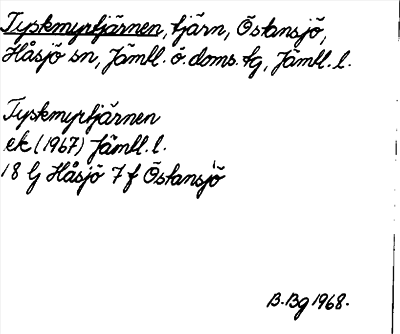 Tyskmyrtjärnen, tjärn, Östansjö,
Håsjö sn, Jämtl. ö. doms. tg, Jämtl. l.
Tyskmyrtjärnen
ek (1967) Jämtl. l.
18 Ij Håsjö 7 f Östansjö
B. Bg 1968.